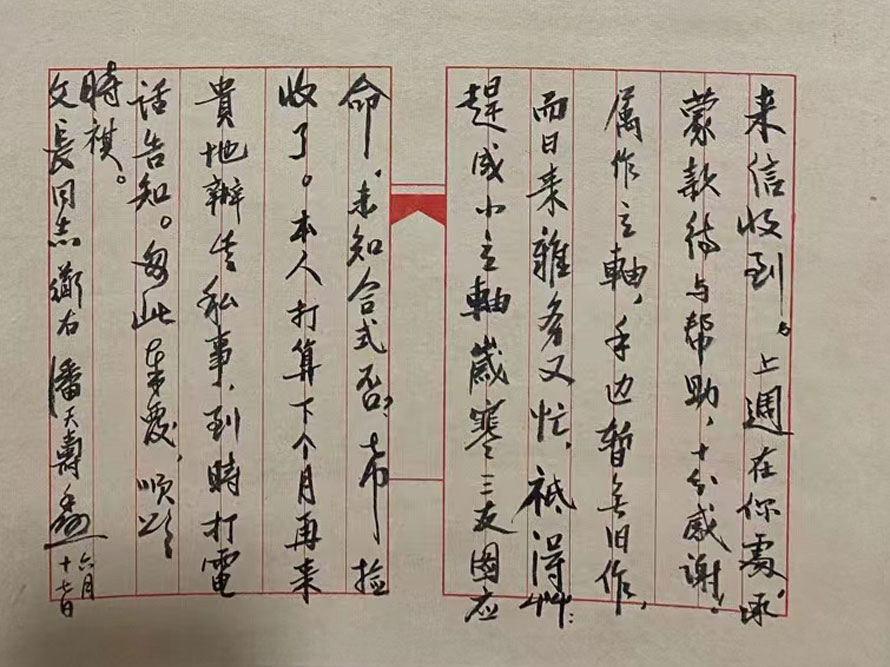 来信收到。上週在你處,承
蒙款待与帮助,十分感谢!
属作立軸,手边暂无旧作,
而日来雜务又忙,祗得
趕成小立軸歲寒三友图应
命,未知合式否?希捡
收了。本人打算下个月再来
貴地辦生私事,到時打電
话告知。匆此奉覆,顺颂
時祺。
文長同志 衛右 潘天壽 六月
十七日